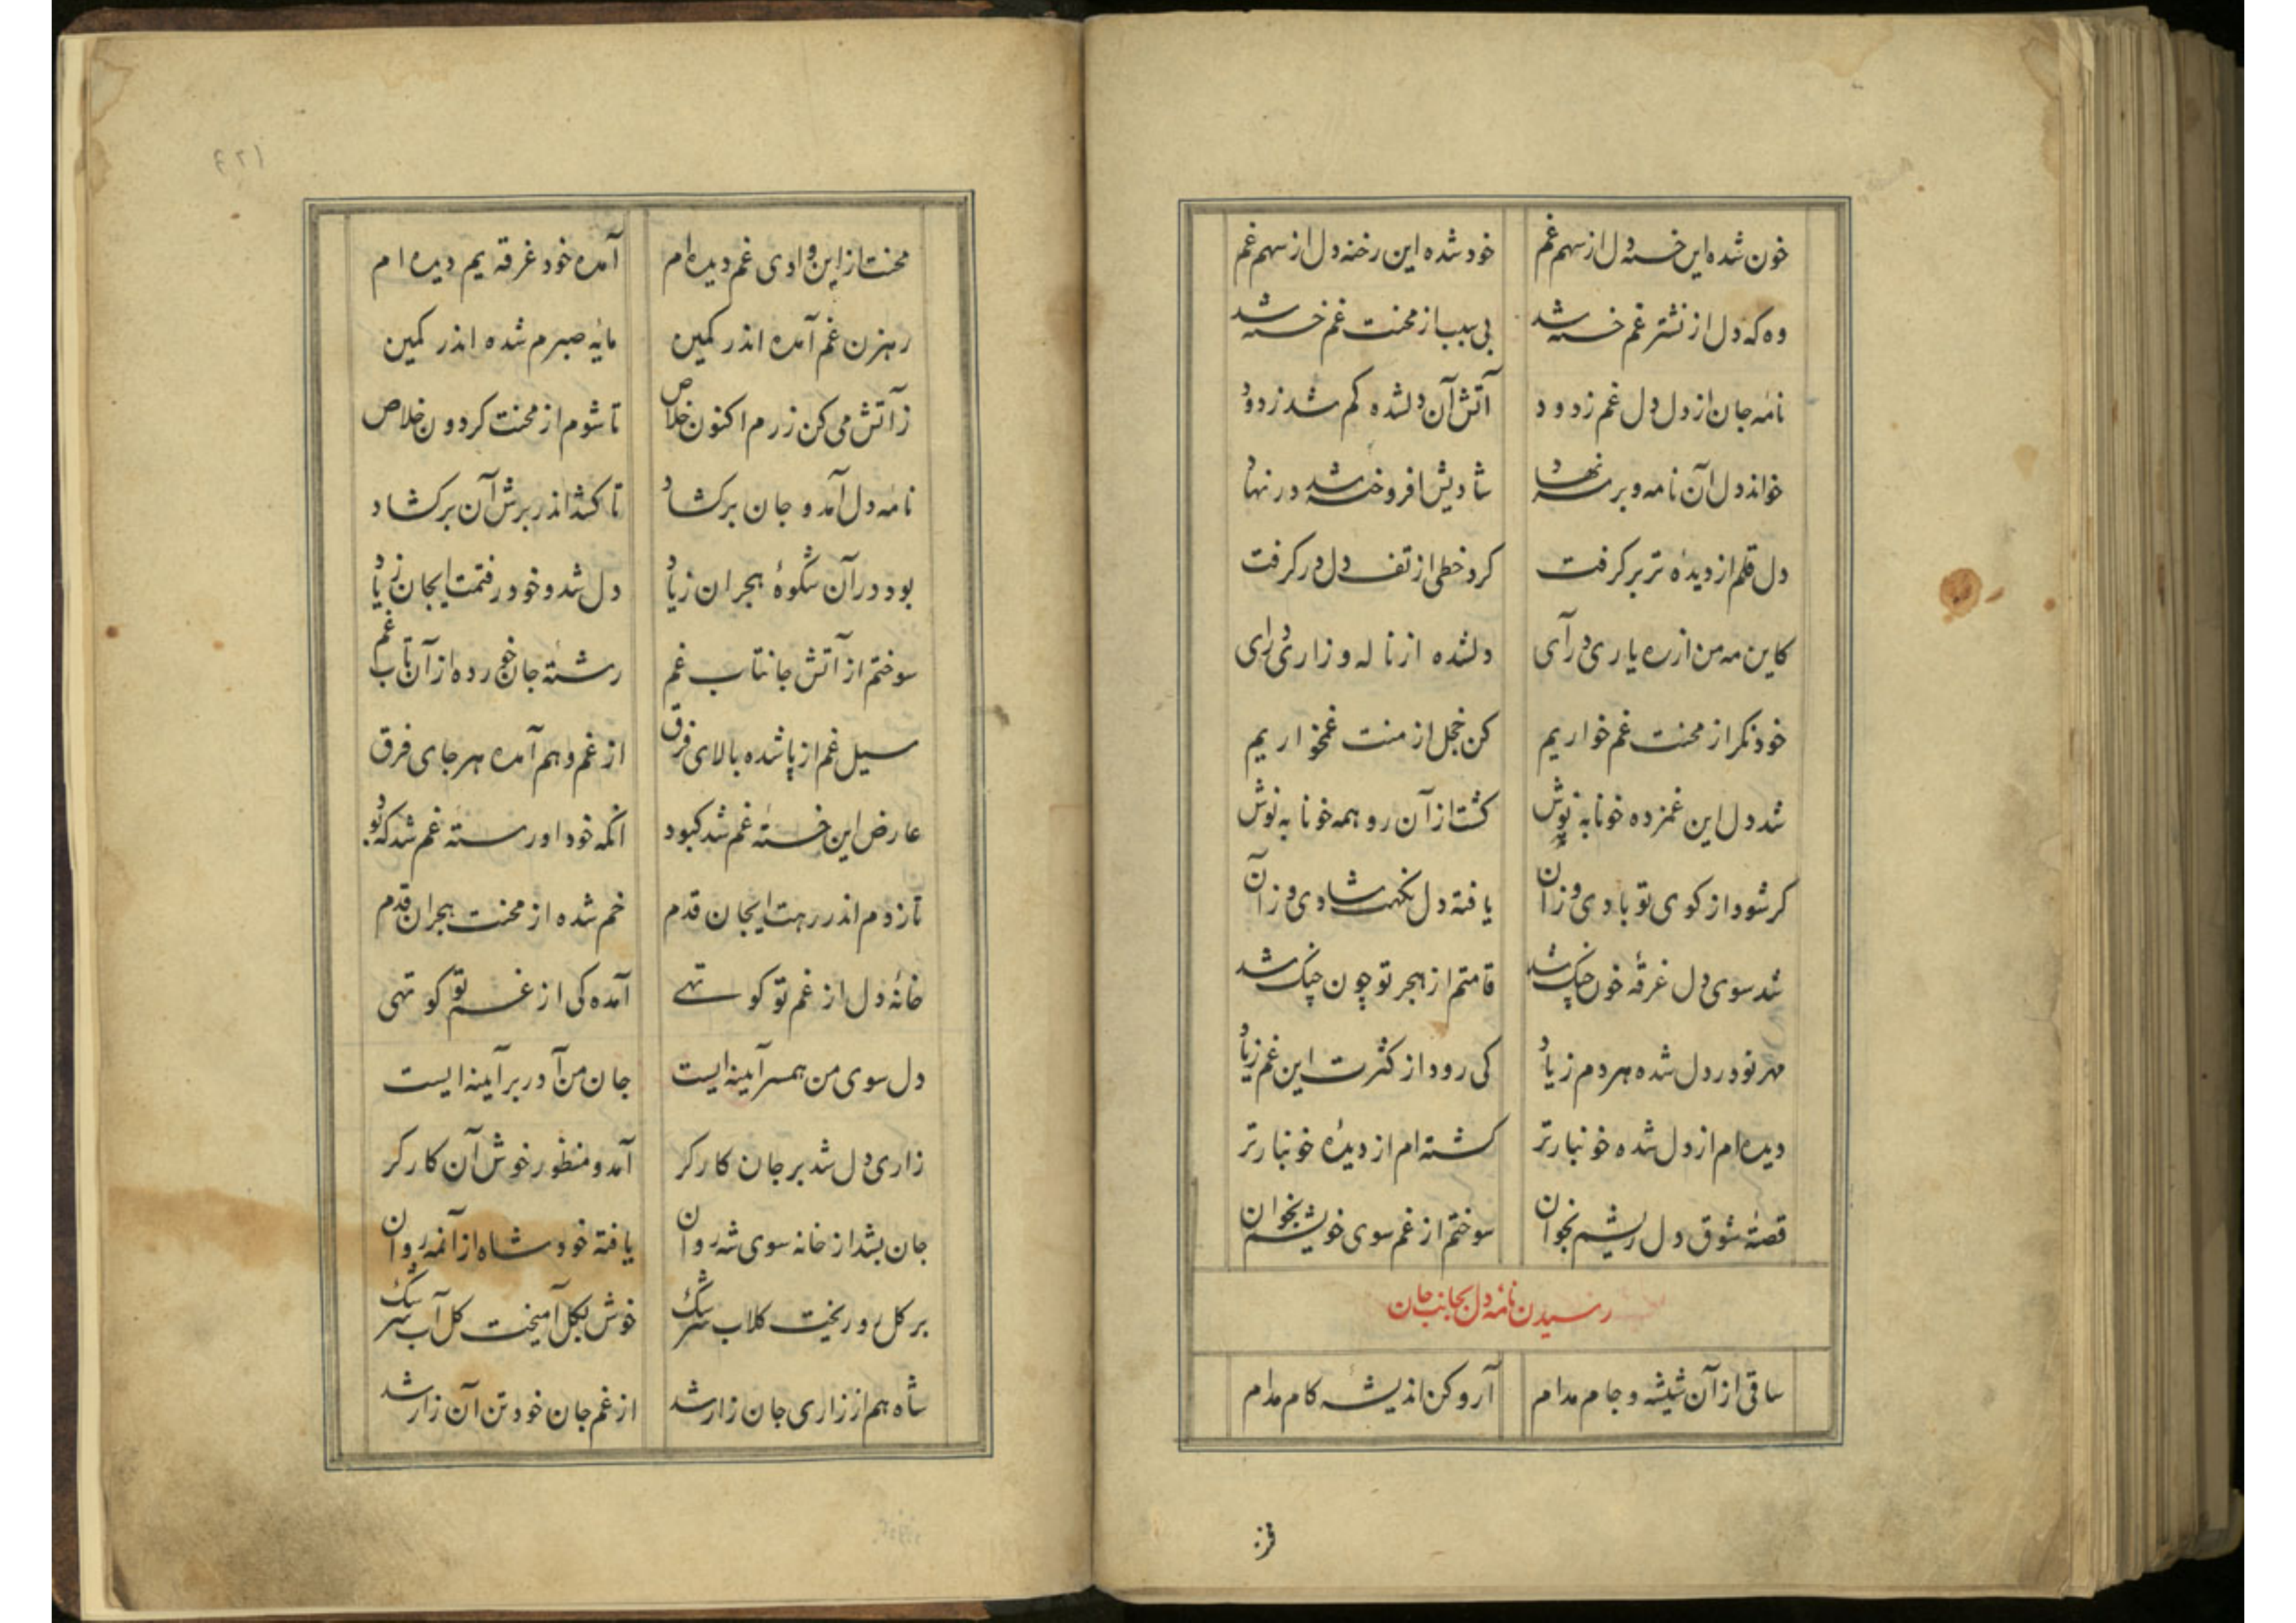 خون شده این خسته دل از سهم غم خود شده این رخنه دل از سهم غم
وه که دل از نشتر غم خسته شد بی سبب از محنت غم خسته شد
نامه جان از دل دل غم زدود آتش آن دلشده کم شد زدود
خواند دل آن نامه و بر سر نهاد شادیش افروخته شد در نهاد
دل قلم از دیدهٔ تر بر گرفت کرد خطی از تف دل در گرفت
کاین مه من از ره یاری درآی دلشده از ناله و زاری درای
خود نگر از محنت غم خواریم کن خجل از منت غمخواریم
شد دل این غمزده خونابه نوش گشت از آن رو همه خونابه نوش
گر شود از کوی تو بادی وزان یافته دل نکهت شادی وز آن
شد سوی دل غرقهٔ خون چنگ شد قامتم از هجر تو چون چنگ شد
مهر تو در دل شده هر دم زیاد کی رود از کثرت این غم زیاد
دیده ام از دل شده خونبارتر گشته ام از دیدهٔ خونبارتر
قصهٔ شوق دل ریشم بخوان سوختم از غم سوی خویشم بخوان
رسیدن نامهٔ دل بجانب جان
ساقی از آن شیشه و جام مدام آر و کن اندیشه کام مدام
محنت از این وادی غم دیده ام آمده خود غرقه یم دیده ام
رهزن غم آمده اندر کمین مایه صبرم شده اندر کمین
ز آتش می کن زرم اکنون خلاص تا شوم از محنت گردون خلاص
نامه دل آمد و جان برگشاد تا کشد اندر برش آن برگشاد
بود در آن شکوهٔ هجران زیاد دل شد و خود رفتمت ایجان زیاد
سوختم از آتش جانتاب غم رشته جان خورده از آن تاب غم
سیل غم از پا شده بالای فرق از غم و هم آمده هر جای فرق
عارض این خستهٔ غم شد کبود انکه خود او رستهٔ غم شد که بود
تا زدم اندر رهت ایجان قدم خم شده از محنت هجران قدم
خانهٔ دل از غم تو کو تهی آمده کی از غم تو کوتهی
دل سوی من همسر آیینه ایست جان من آ در بر آیینه ایست
زاری دل شد بر جان کارگر آمد و منظور خوش آن کارگر
جان بشد از خانه سوی شه روان یافته خود شاه از آنمه روان
بر گل رو ریخت گلاب سرشک خوش بگل آمیخت گل آب سرشک
شاه هم از زاری جان زار شد از غم جان خود تن آن زار شد